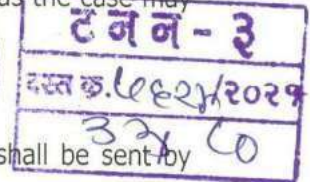 as the case may
ट न न - ३
दस्त क्र. ५६२५/२०२१
३५ ८०
shall be sent by